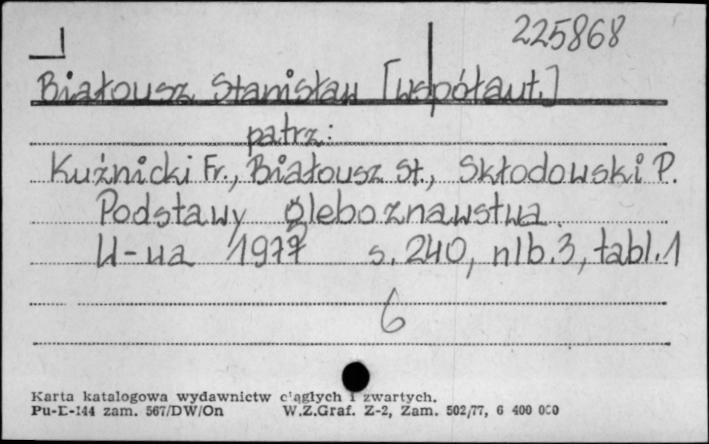 225868
Białousz Stanisław [współaut.]
patrz:
Kuźnicki Fr., Białousz St., Skłodowski P.
Podstawy gleboznawstwa.
W-wa 1977 s. 240, nlb. 3, tabl. 1
6
Karta katalogowa wydawnictw ciągłych i zwartych.
Pu-K-144 zam. 567/DW/On W.Z.Graf. Z-2, Zam. 502/77, 6 400 000